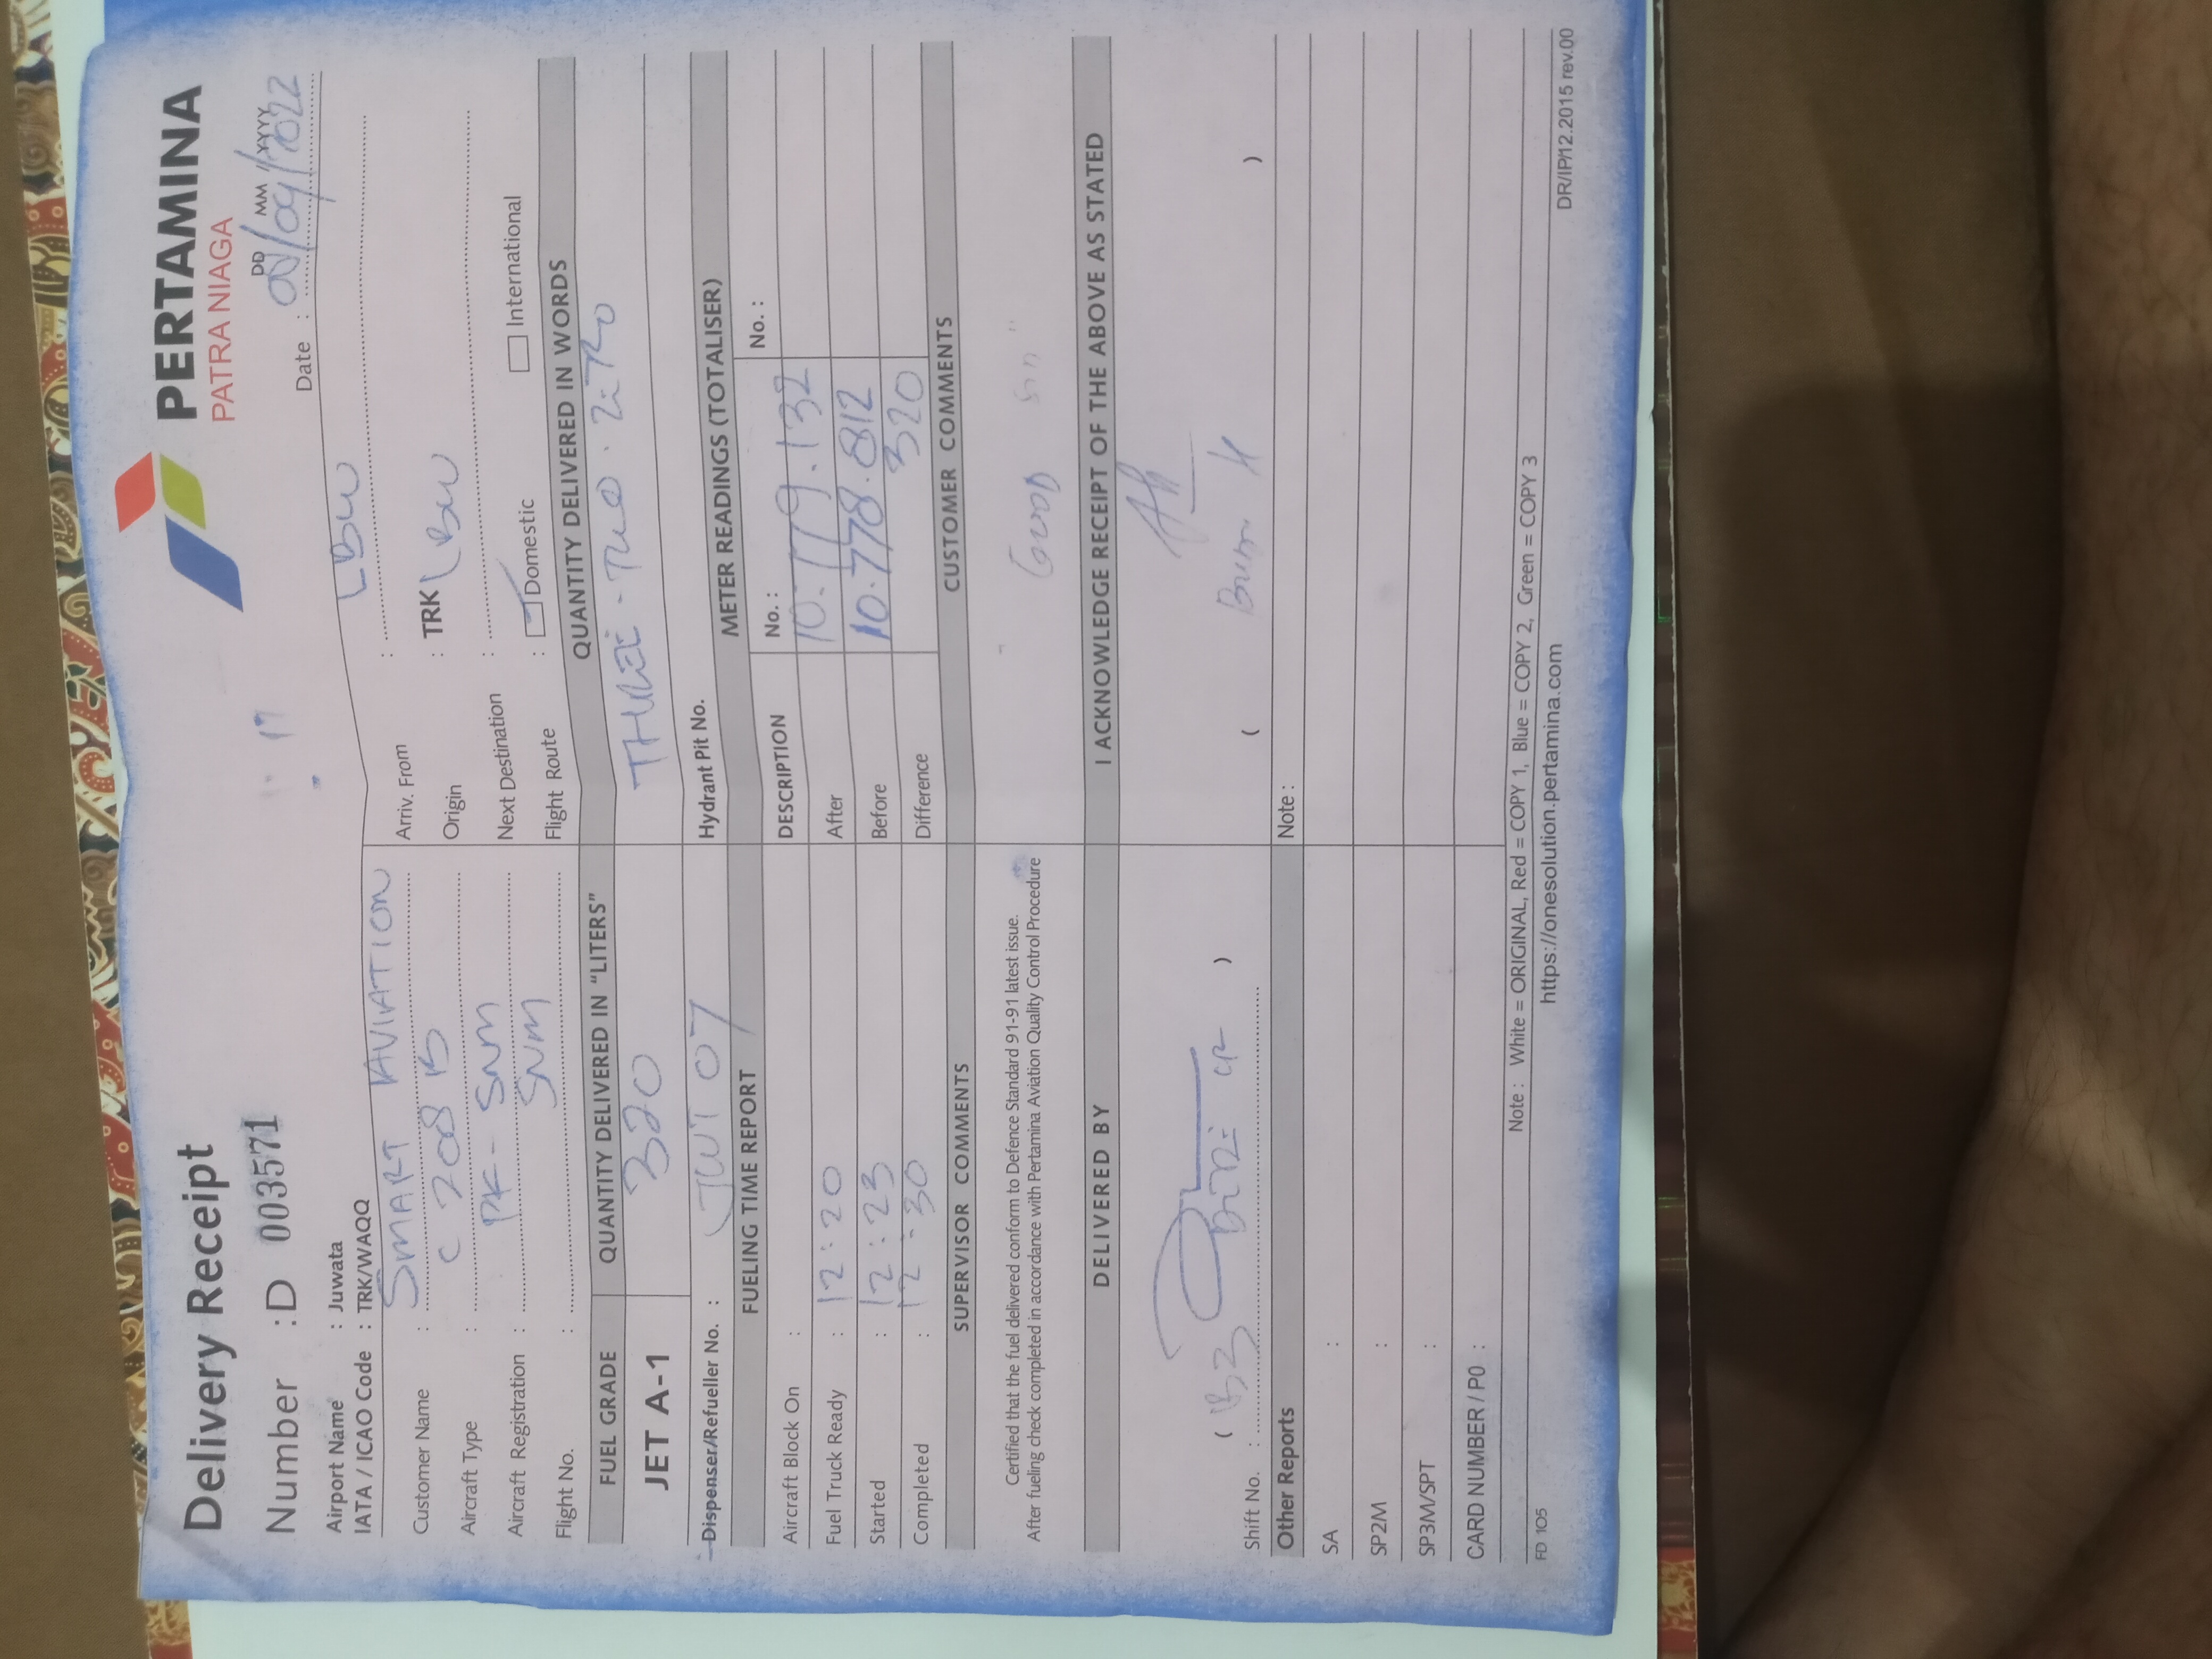 Delivery Receipt
PERTAMINA
PATRA NIAGA
Number : D 003571
DD MM / YYYY
Date : /09/2022
Airport Name : Juwata
IATA / ICAO Code : TRK/WAQQ
Customer Name : SMART AVIATION
Aircraft Type : C 208 B
Aircraft Registration : PK - SNM
Flight No. : SNM
Arriv. From : LBW
Origin : TRK
Next Destination : LBW
Flight Route : Domestic International
FUEL GRADE
QUANTITY DELIVERED IN "LITERS"
QUANTITY DELIVERED IN WORDS
JET A-1
320
THREE - TWO .
Dispenser/Refueller No. : JWT 07
Hydrant Pit No.
FUELING TIME REPORT
METER READINGS (TOTALISER)
Aircraft Block On :
DESCRIPTION No. : No. :
Fuel Truck Ready : 12:20
After 10.779.132
Started : 12:23
Before 10.778.812
Completed : 12:30
Difference 320
SUPERVISOR COMMENTS
CUSTOMER COMMENTS
Certified that the fuel delivered conform to Defence Standard 91-91 latest issue.
After fueling check completed in accordance with Pertamina Aviation Quality Control Procedure
GOOD
DELIVERED BY
I ACKNOWLEDGE RECEIPT OF THE ABOVE AS STATED
Shift No. : ( )
( )
Other Reports
Note :
SA :
SP2M :
SP3M/SPT :
CARD NUMBER / PO :
Note : White = ORIGINAL, Red = COPY 1, Blue = COPY 2, Green = COPY 3
FD 105
https://onesolution.pertamina.com
DR/IP/12.2015 rev.00